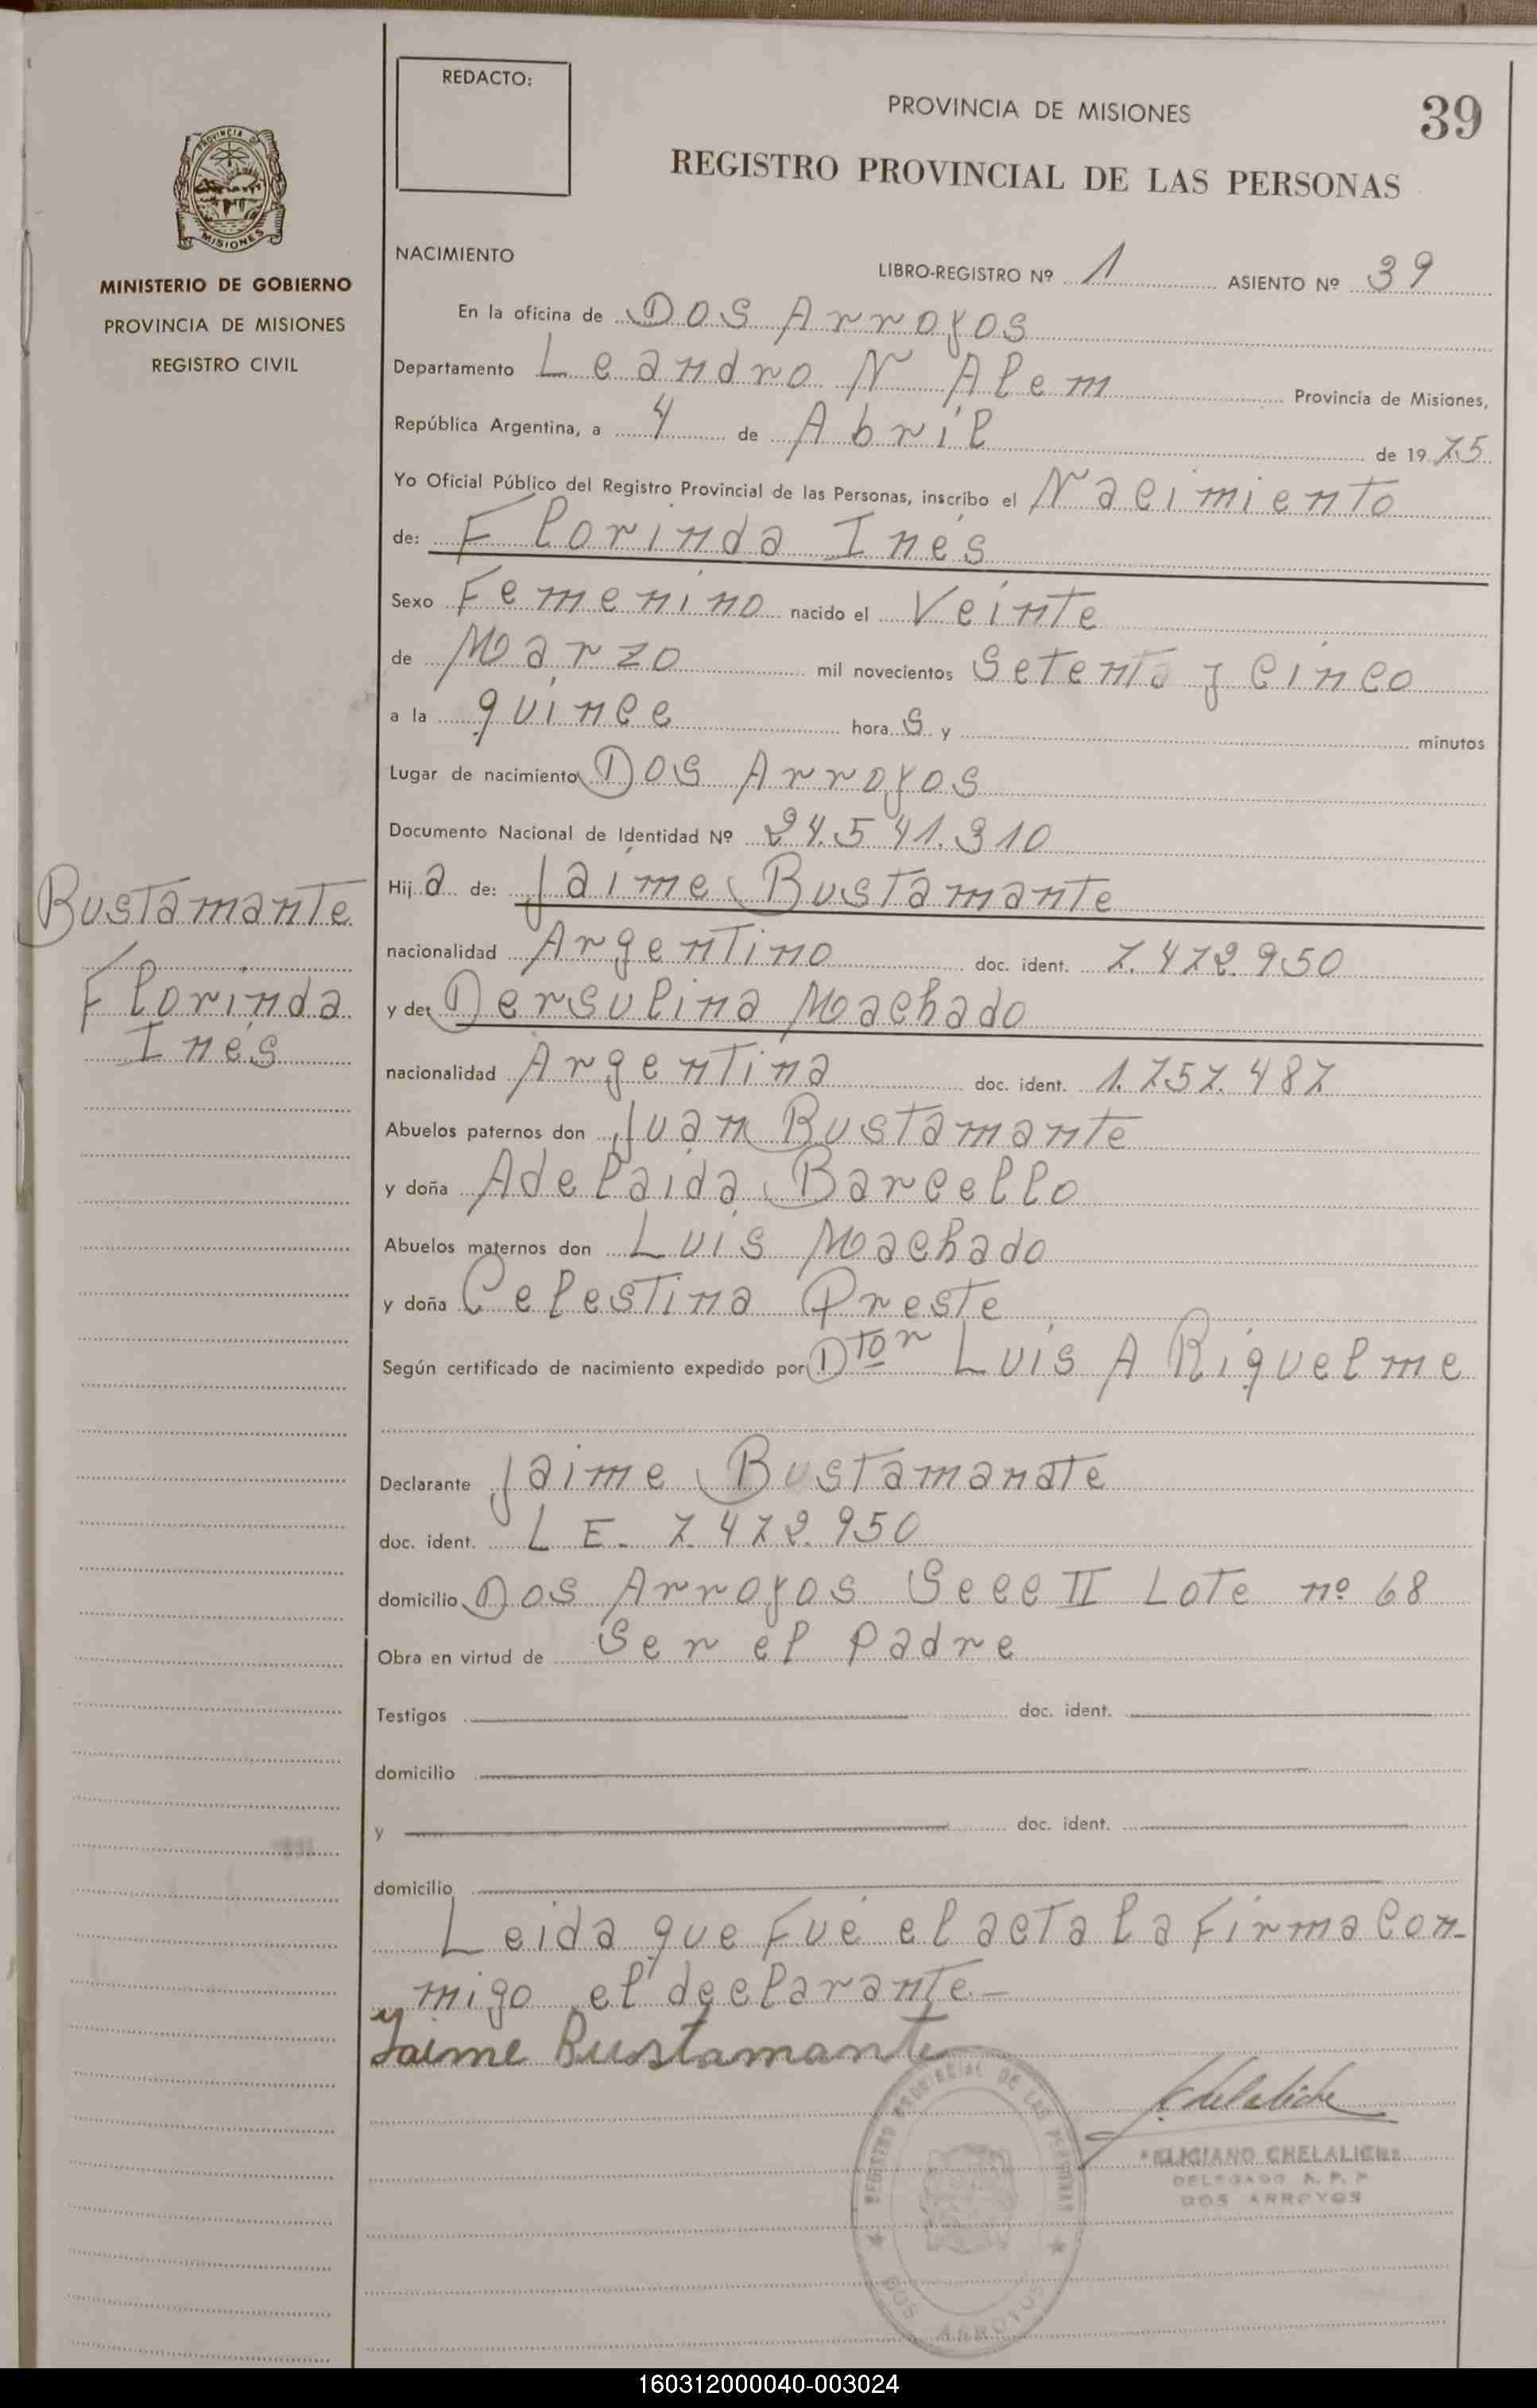 REDACTO:
PROVINCIA DE MISIONES
39
REGISTRO PROVINCIAL DE LAS PERSONAS
PROVINCIA DE
MISIONES
MINISTERIO DE GOBIERNO
PROVINCIA DE MISIONES
REGISTRO CIVIL
NACIMIENTO
LIBRO-REGISTRO Nº 1 ASIENTO Nº 39
En la oficina de Dos Arroyos
Departamento Leandro N Alem Provincia de Misiones,
República Argentina, a 4 de Abril de 1975
Yo Oficial Público del Registro Provincial de las Personas, inscribo el Nacimiento
de: Florinda Inés
Sexo Femenino nacido el Veinte
de Marzo mil novecientos Setenta y Cinco
a la quince hora s y minutos
Lugar de nacimiento Dos Arroyos
Documento Nacional de Identidad Nº 24.541.310
Hij a de: Jaime Bustamante
nacionalidad Argentino doc. ident. 7.472.950
y de: Dersulina Machado
nacionalidad Argentina doc. ident. 1.757.487
Abuelos paternos don Juan Bustamante
y doña Adelaida Barcello
Abuelos maternos don Luis Machado
y doña Celestina Preste
Según certificado de nacimiento expedido por Dtor Luis A Riquelme
Declarante Jaime Bustamanate
doc. ident. L E. 7.472.950
domicilio Dos Arroyos Secc II Lote nº 68
Obra en virtud de Ser el padre
Testigos doc. ident.
domicilio
y doc. ident.
domicilio
Leida que fué el acta la firma con-
migo el declarante.-
Jaime Bustamante
Bustamante
Florinda
Inés
REGISTRO PROVINCIAL DE LAS PERSONAS
DOS ARROYOS
FELICIANO CHELALICHE
DELEGADO R. P. P
DOS ARROYOS
160312000040-003024